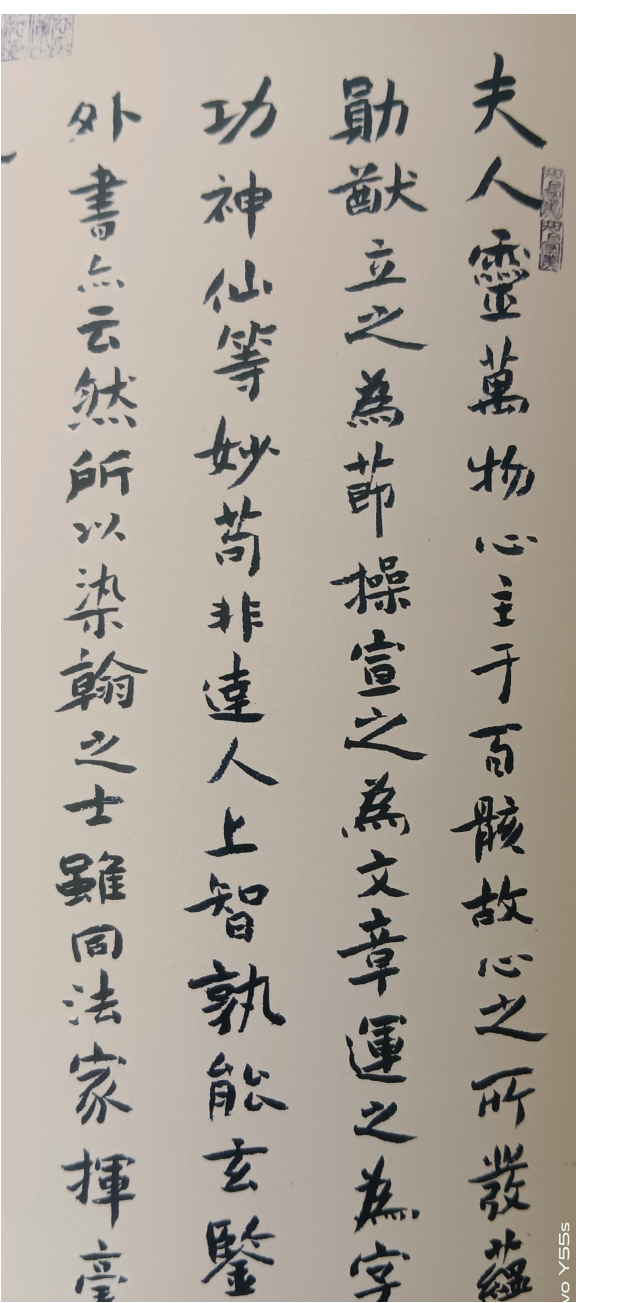 夫人靈萬物心主于百骸故心之所發蘊
勛猷立之為節操宣之為文章運之為字
功神仙等妙苟非達人上智孰能玄鑒
外書亦云然所以染翰之士雖同法家揮毫
vo Y55s